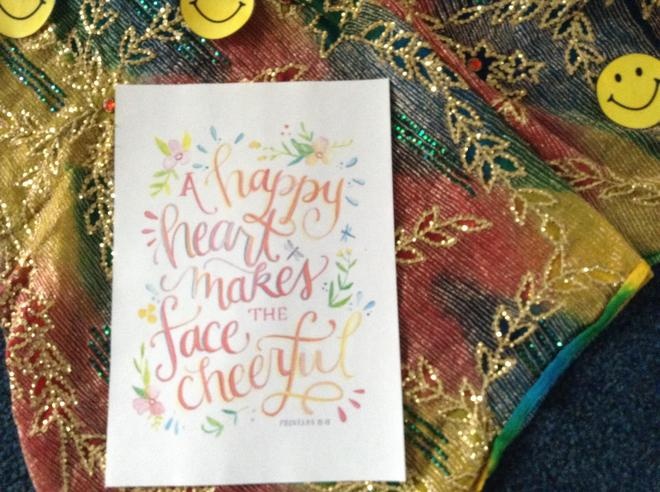 A happy
heart
makes
THE
face
cheerful
PROVERBS 15:13